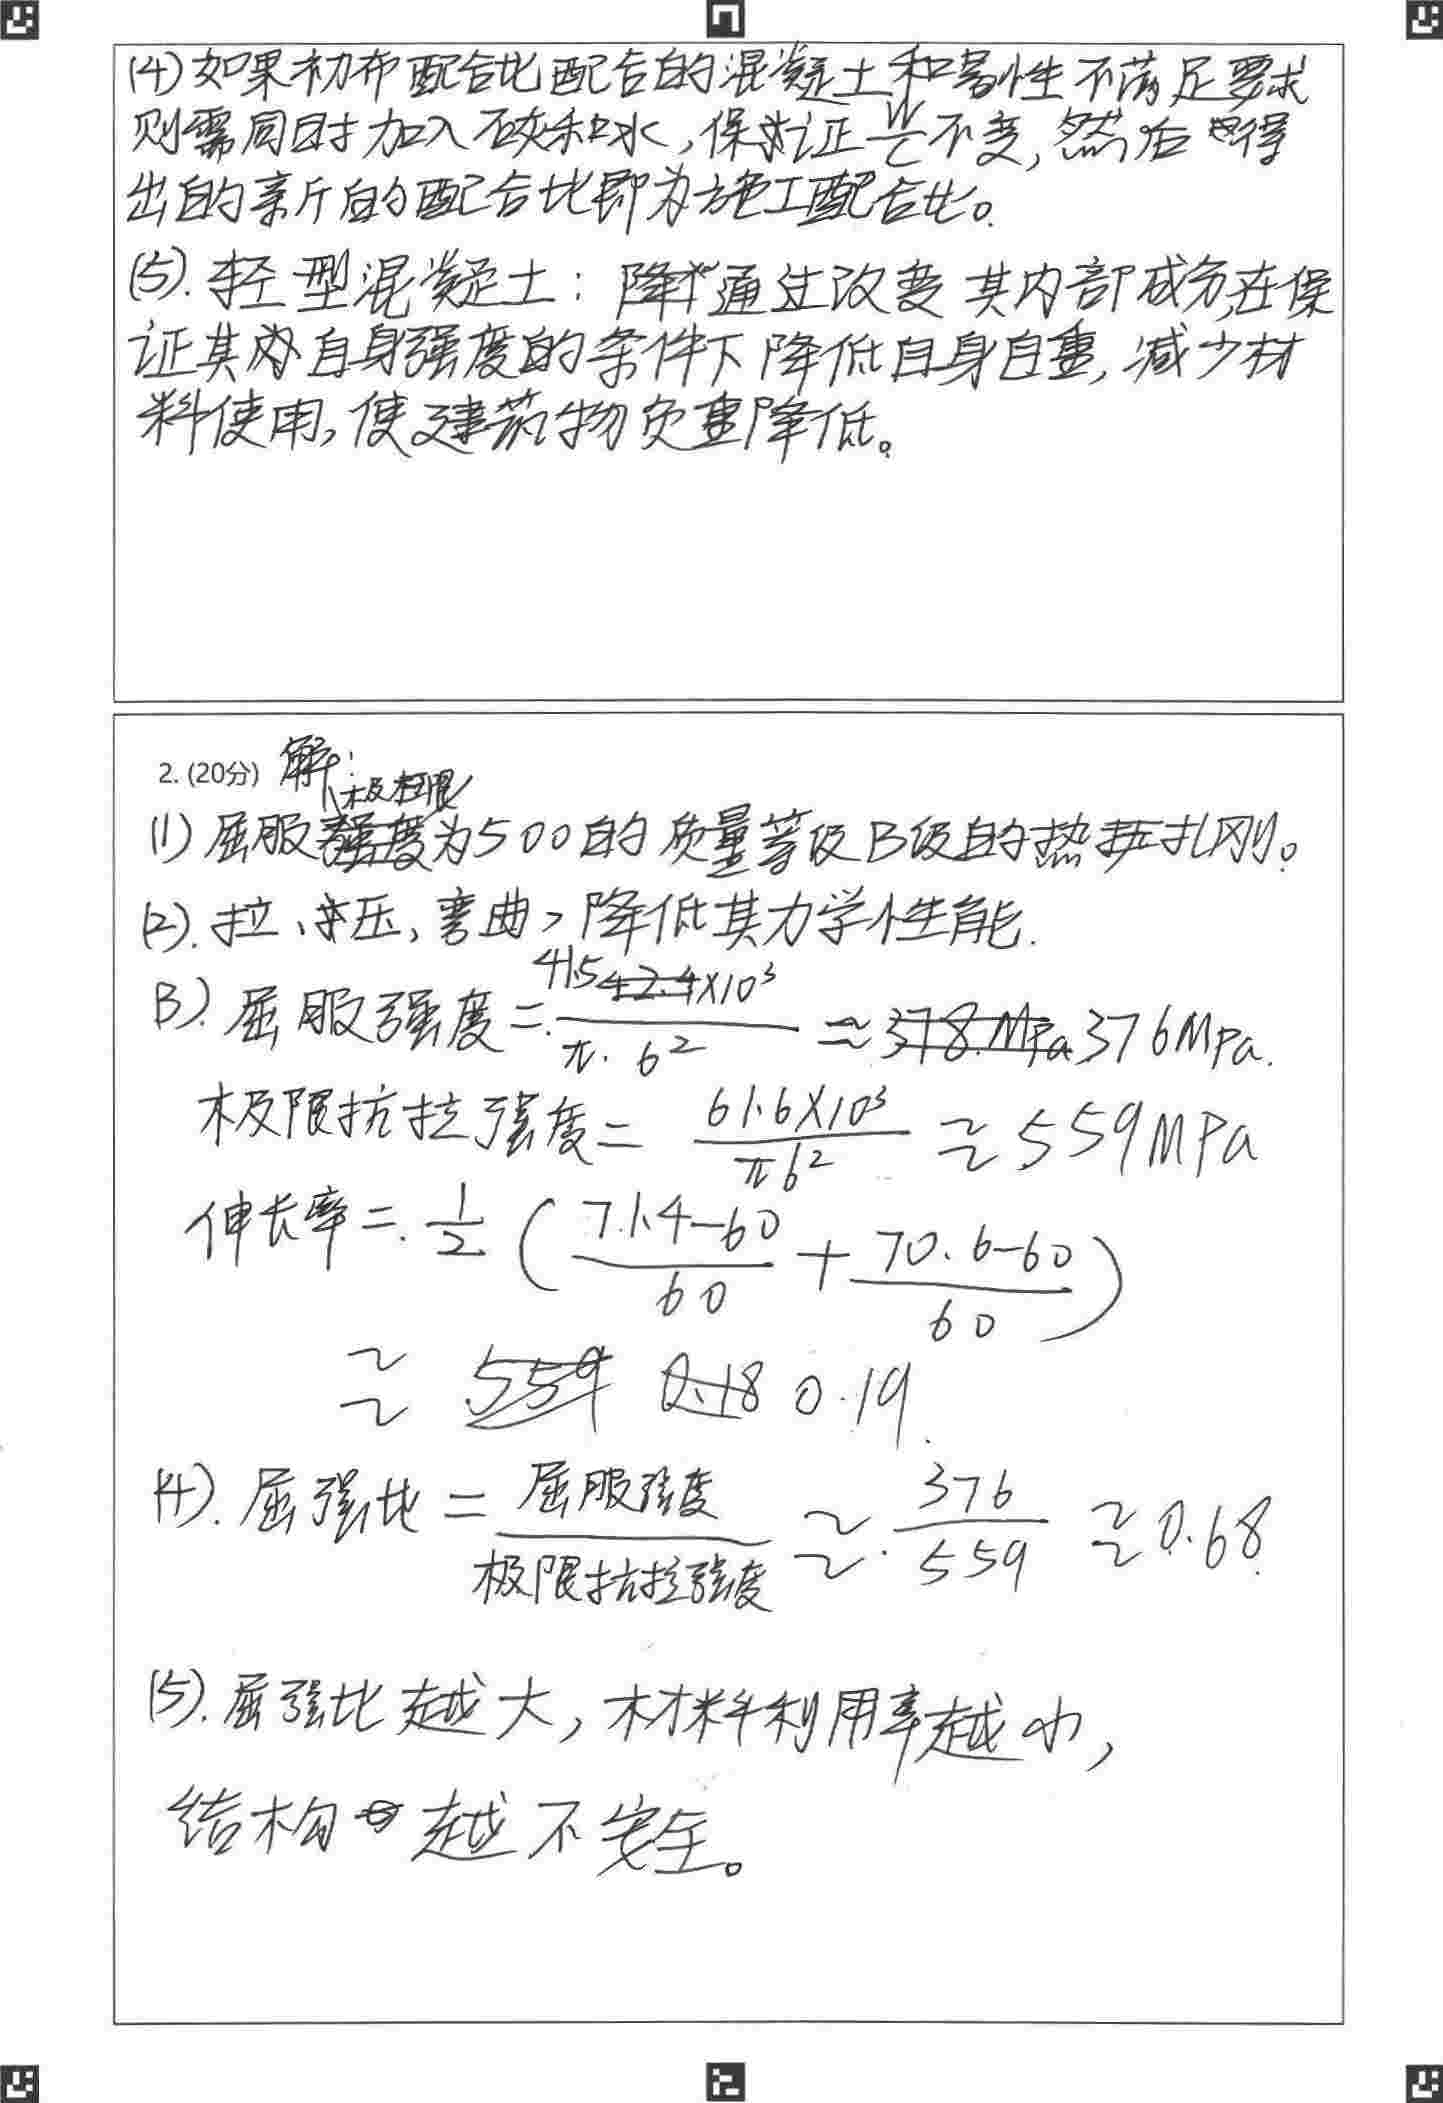 (4) 如果初布配合比配合的混凝土和易性不满足要求
则需同时加入砂和水,保证 W/C 不变,然后得
出的新的配合比即为施工配合比。
(5). 轻型混凝土: 通过改变其内部成分,在保
证其自身强度的条件下降低自身自重,减少材
料使用,使建筑物负重降低。
2. (20分) 解:
极限
(1) 屈服强度为500的质量等级B级的热轧刚。
(2). 拉、压,弯曲,降低其力学性能.
(3). 屈服强度 = 41.5×10³ / π·6² ≈ 376MPa.
极限抗拉强度 = 61.6×10³ / π6² ≈ 559MPa
伸长率 = 1/2 ( 71.4-60 / 60 + 70.6-60 / 60 )
≈ 0.19.
(4). 屈强比 = 屈服强度 / 极限抗拉强度 ≈ 376 / 559 ≈ 0.68.
(5). 屈强比越大,材料利用率越小,
结构越不安全。